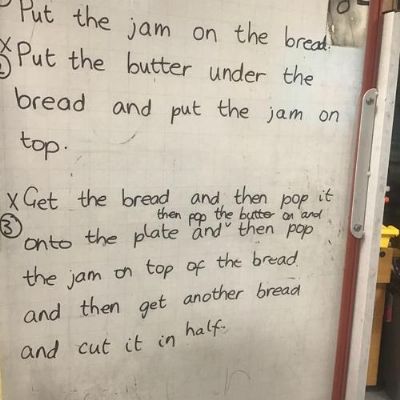 Put the jam on the bread.
x Put the butter under the
2 bread and put the jam on
top.
x Get the bread and then pop it
then pop the butter on and
3 onto the plate and ^ then pop
the jam on top of the bread
and then get another bread
and cut it in half.